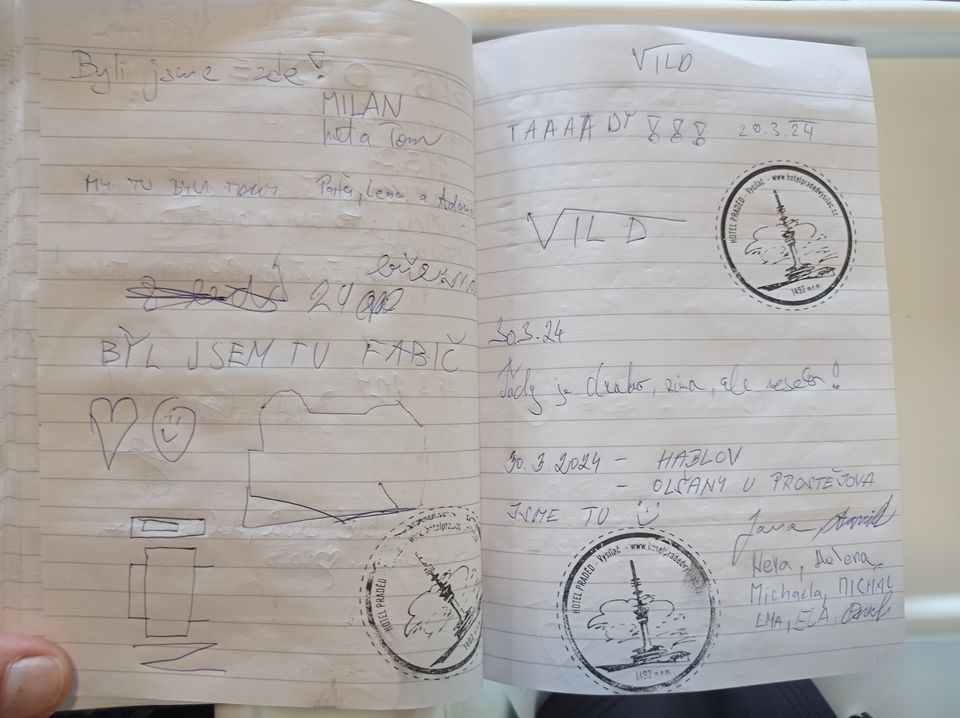 Byli jsme zde!
MILAN
Iveta Tom
MY TU BYLI TAKY Péťa, Lena a Adam
března
24
BYL JSEM TU FABIČ
HOTEL PRADĚD - Vysílač - www.hotelpradedvysilac.cz
1492 m.n.m
VILD
TAAAADY!!! 20.3.24
HOTEL PRADĚD - Vysílač - www.hotelpradedvysilac.cz
1492 m.n.m
VILD
30.3.24
Tady je draho, zima, ale veselo!!
30.3.2024 - HABLOV
- OLŠANY U PROSTĚJOVA
JSME TU
Jana
Nela, Helena,
Michaela, MICHAL
EMA, ELA,
HOTEL PRADĚD - Vysílač - www.hotelpradedvysilac.cz
1492 m.n.m